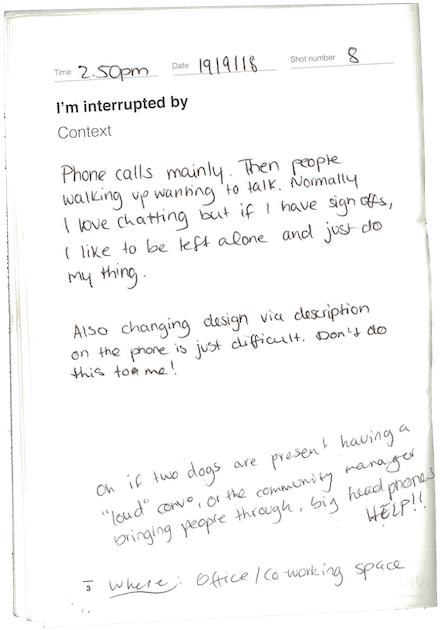 Time 2.50pm Date 19/9/18 Shot number 8
I'm interrupted by
Context
Phone calls mainly. Then people
walking up wanting to talk. Normally
I love chatting but if I have sign offs,
I like to be left alone and just do
my thing.
Also changing design via description
on the phone is just difficult. Don't do
this to me!
Oh if two dogs are present having a
"loud" convo, or the community manager
bringing people through, big headphones
HELP!!
3 Where: Office/Co-working space